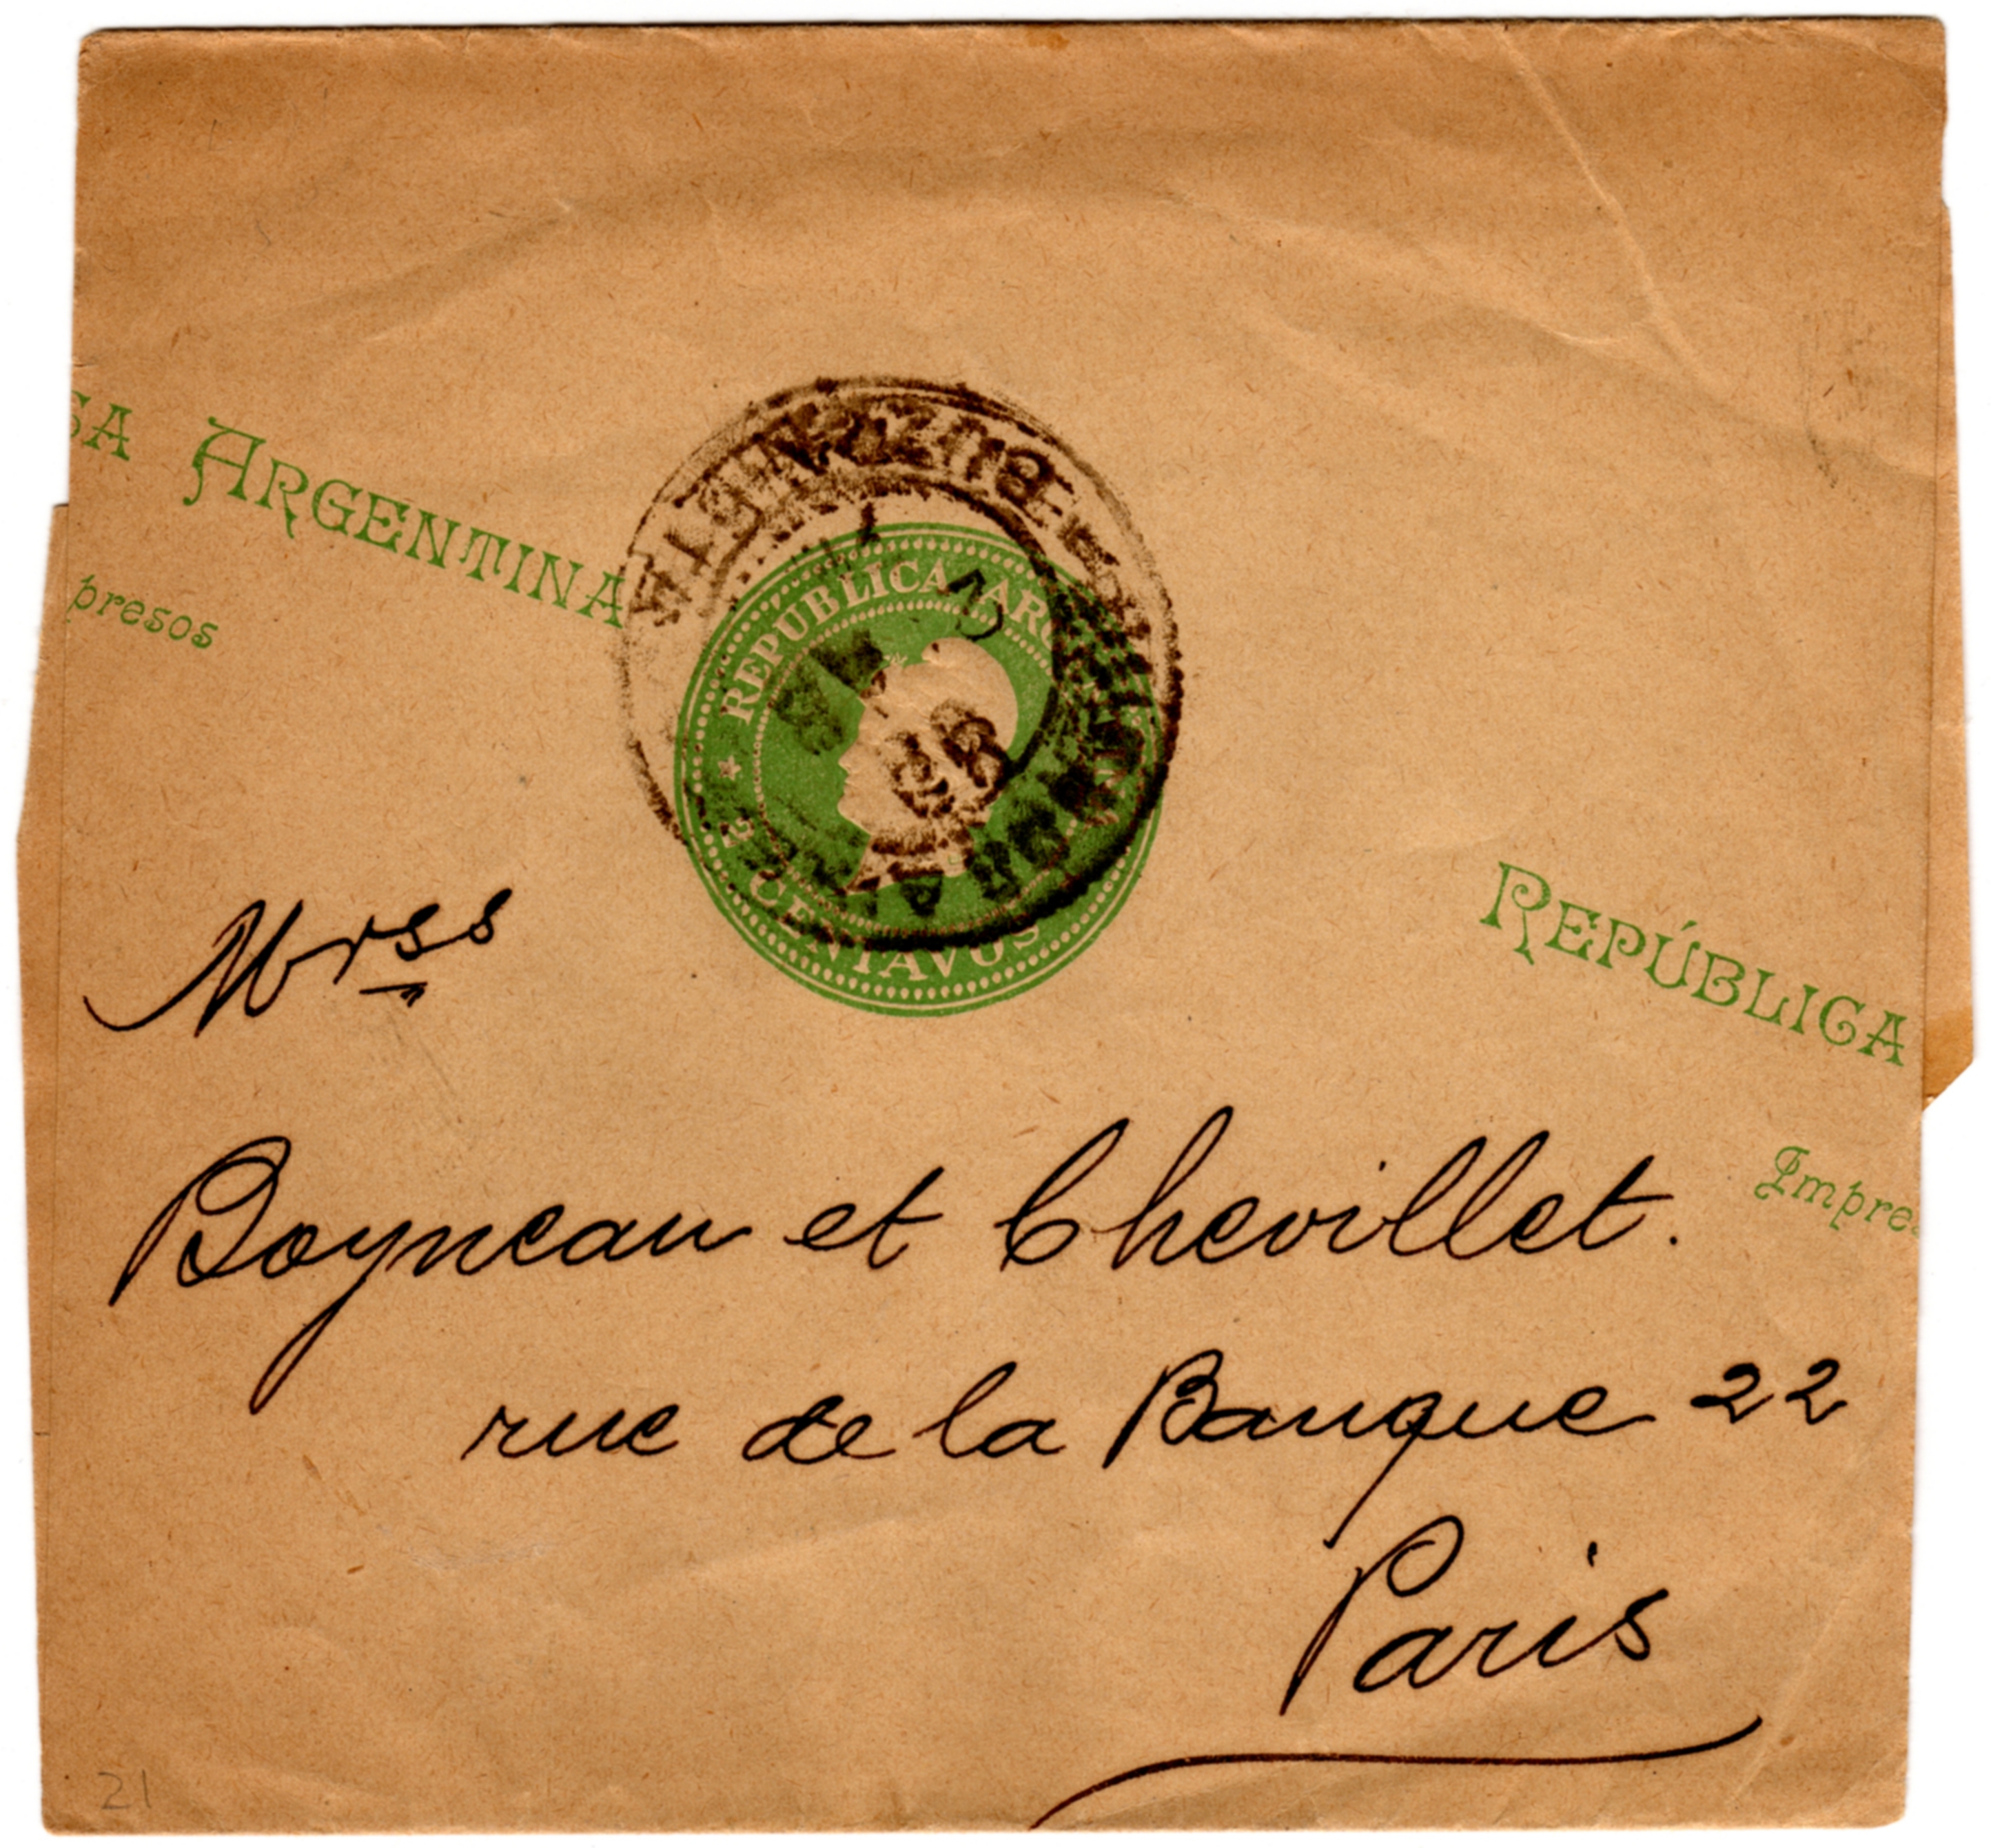 CA ARGENTINA
presos
REPUBLICA ARG
CENTAVOS
REPÚBLICA
Impres
Mrss
Boyneau et Chevillet.
rue de la Banque 22
Paris
21